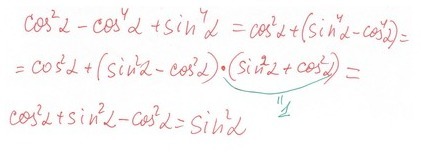 cos²α - cos⁴α + sin⁴α = cos²α + (sin⁴α - cos⁴α) =
= cos²α + (sin²α - cos²α) • (sin²α + cos²α) =
"1
cos²α + sin²α - cos²α = sin²α